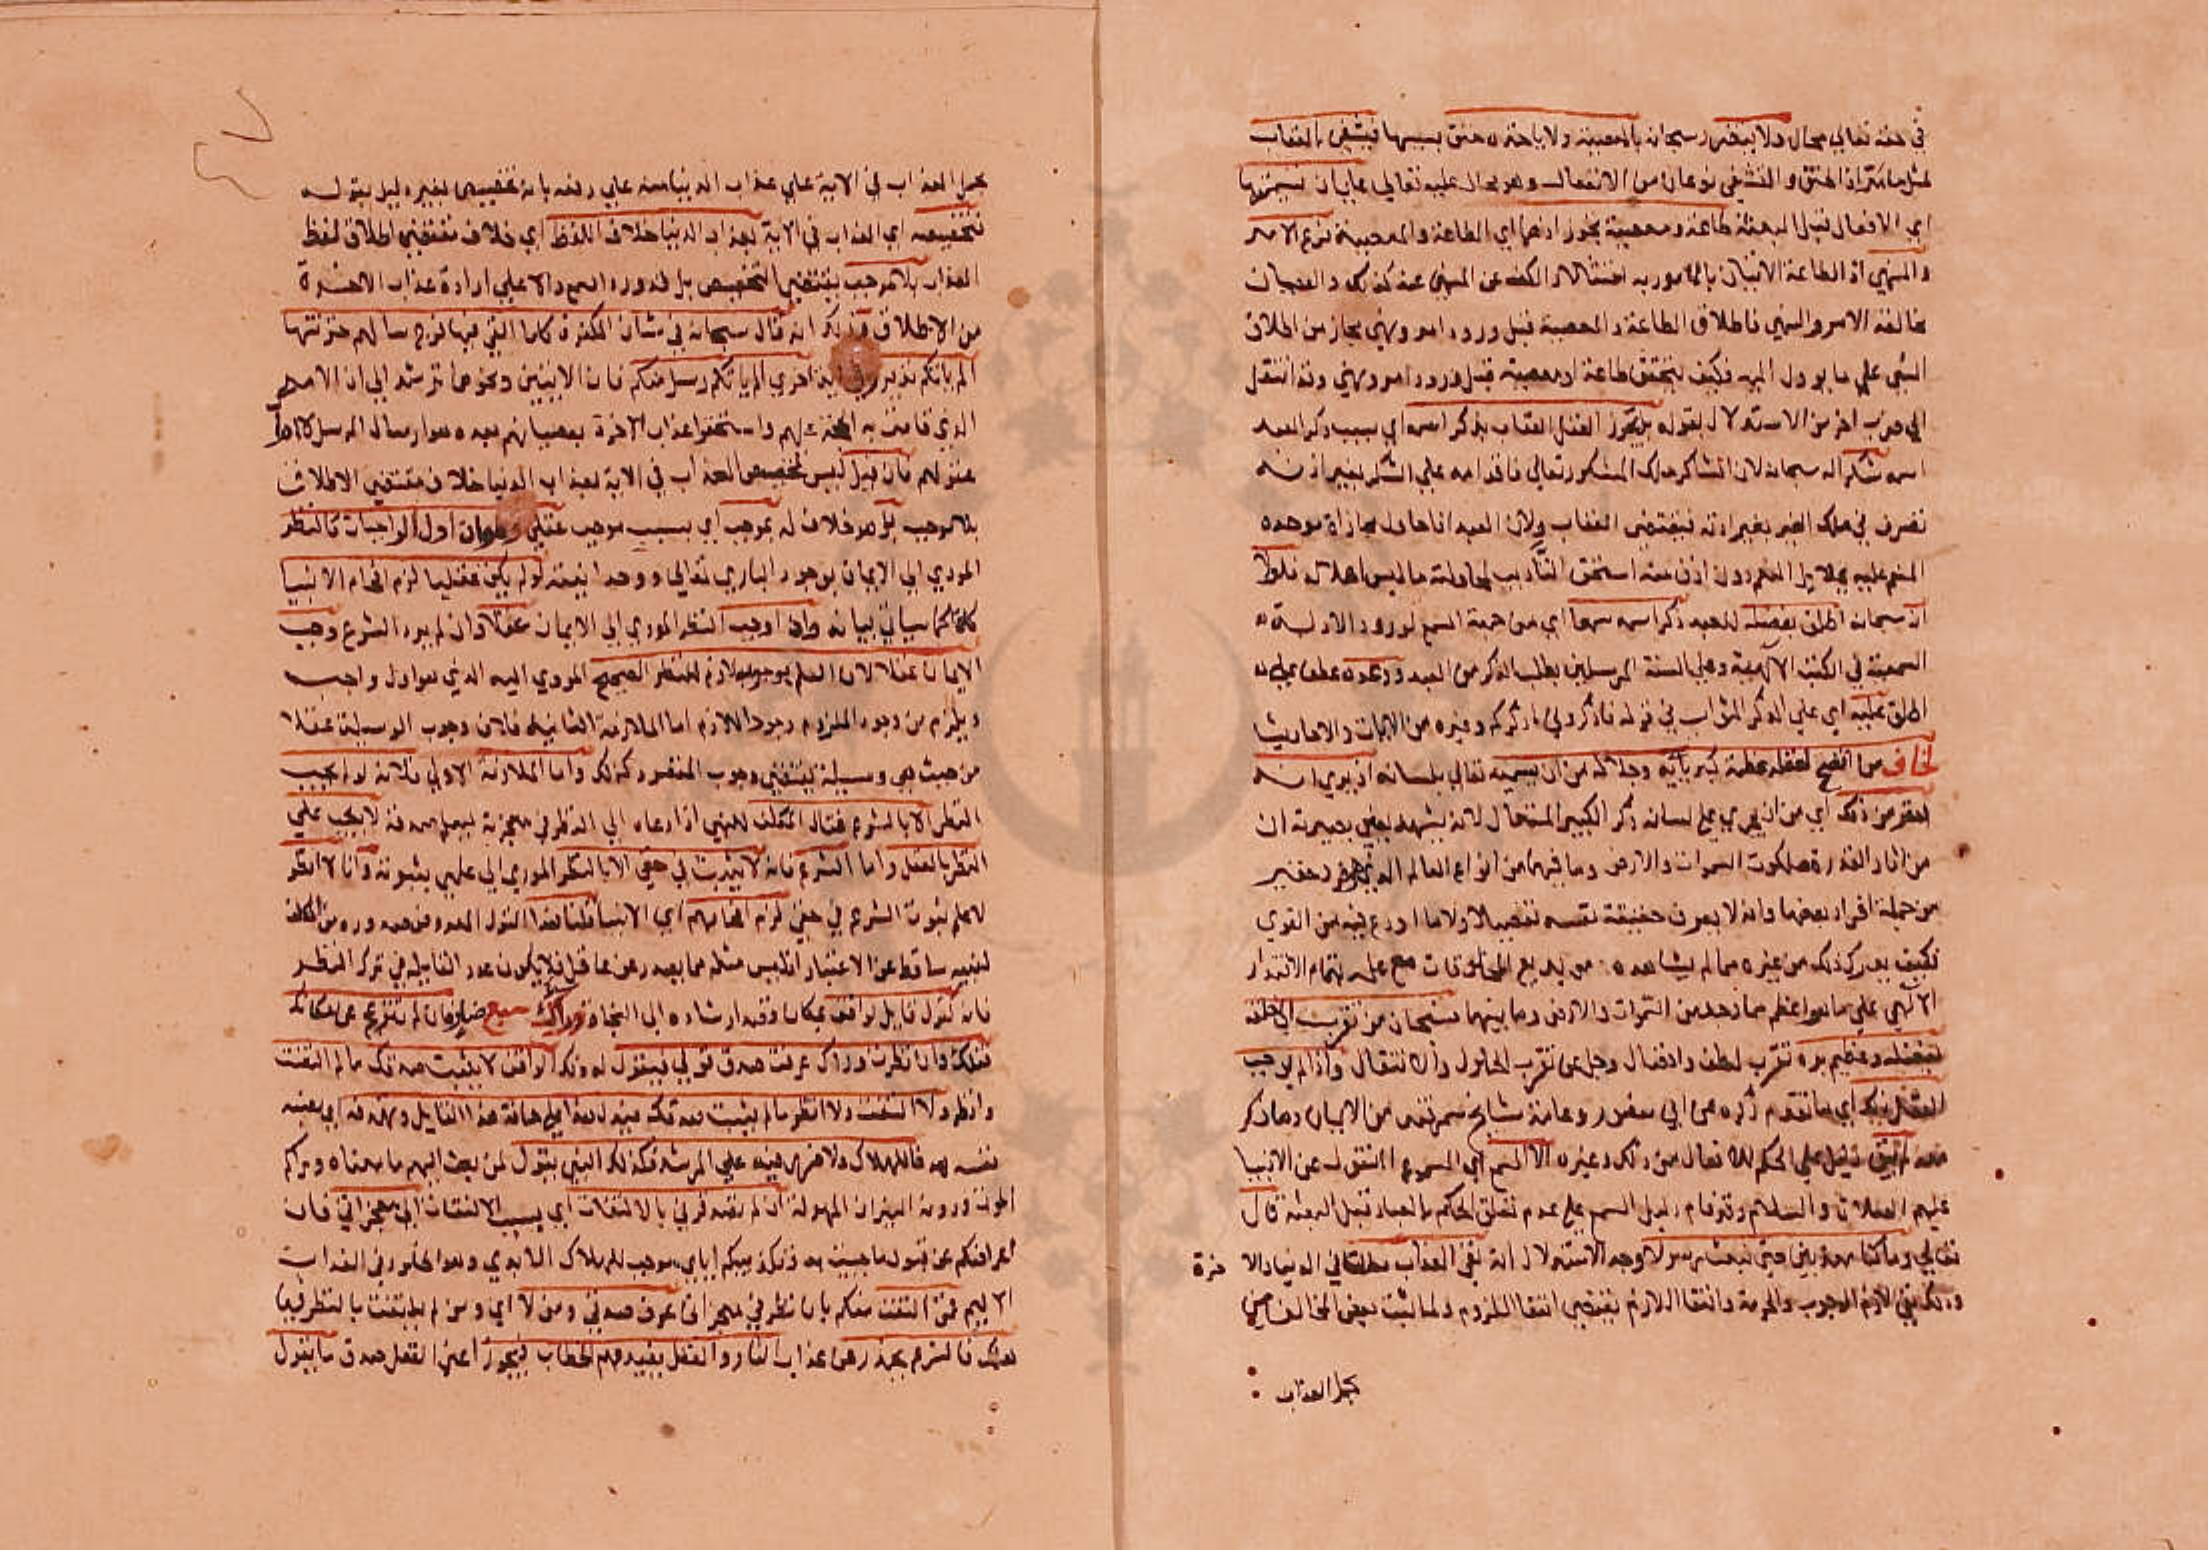 في حقه تعالى محال ولا يتضرر سبحانه بالمعصية ولا ياخذه حنق بسببها فيتشفى بالعقاب
لمثل ما مر اذ الحنق والتشفي نوعان من الانفعال وهو محال عليه تعالى على ان تسميتها
اي الافعال قبل البعثة طاعة ومعصية تجوز اذ هما اي الطاعة والمعصية فرع الامر
والنهي اذ الطاعة الاتيان بالمامور به امتثالا والكف عن المنهي عنه كذلك والعصيان
مخالفة الامر والنهي فاطلاق الطاعة والمعصية قبل ورود امر ونهي مجاز من اطلاق
الشي على ما يوول اليه فكيف تتحقق طاعة او معصية قبل ورود امر ونهي وقد انتقل
الى ضرب اخر من الاستدلال بقوله بل يجوز العقل العقاب بذكر اسمه اي بسبب ذكر العبد
اسمه شكرا له سبحانه لان الشاكر ملك المشكور تعالى فاقدامه على الشكر بغير اذنه
تصرف في ملك الغير بغير اذنه فيقتضي العقاب ولان العبد اذا حاول مجازاة موحده
المنعم عليه بجلايل النعم دون اذن منه استحق التاديب لمحاولته ما ليس اهلا له فلولا
انه سبحانه اطلق بفضله للعبد ذكر اسمه سمعا اي من جهة السمع لورود الادلة
السمعية في الكتب الالهية وعلى السنة المرسلين بطلب الذكر من العبد ووعده عطف على
اطلق عليه اي على الذكر الثواب في قوله فاذكروني اذكركم وغيره من الايات والاحاديث
لخاف من اتضح لعقله عظمة كبريائه وجلاله من ان يسميه تعالى بلسانه اذ يرى انه
احقر من ذلك اي من ان يجري على لسانه ذكر الكبير المتعال لانه يشهد بعين بصيرته ان
من اثار القدرة ملكوت السموات والارض وما فيهما من انواع العالم الذي هو فرد حقير
من جملة افراد بعضها وانه لا يعرف حقيقة نفسه تفصيلا ولا ما اودع فيه من القوي
فكيف يدرك ذلك من غيره مما لم يشاهده من بديع المخلوقات مع علمه بتمام الاقتدار
الالهي على ما هو اعظم مما وجد من السموات والارض وما بينهما فسبحان من تقرب الى خلقه
بفضله وعظيم بره تقرب لطف وافضال وجل عن تقرب الحلول والانتقال واذا لم يوجب
العقل ذلك اي ما تقدم ذكره عن ابي منصور وعامة مشايخ سمرقند من الايمان وما ذكر
معه لم يبق دليل على الحكم للافعال من ذلك وغيره الا السمع اي المسموع المنقول عن الانبيا
عليهم الصلاة والسلام وقد قام دليل السمع على عدم تعلق الحكم بالعباد قبل البعثة قال
تعالى وما كنا معذبين حتى نبعث رسولا وجه الاستدلال انه نفى العذاب مطلقا في الدنيا والا خرة
وذلك نفي لازم الوجوب والحرمة وانتفا اللازم يقتضي انتفا الملزوم ولما بنت بعض المخالفين
بحمل العذاب
بحمل العذاب في الاية على عذاب الدنيا منه على دفعه بانه تخصيص بغير دليل بقوله
تخصيصه اي العذاب في الاية بعذاب الدنيا خلاف اللفظ اي خلاف مقتضى اطلاق لفظ
العذاب بلا موجب يقتضي التخصيص بل قد ورد السمع دالا على ارادة عذاب الاخرة
من الاطلاق فذلك انه قال سبحانه في شان الكفرة كلما القي فيها فوج سالهم خزنتها
الم ياتكم نذير وفي اية اخرى الم ياتكم رسل منكم فان الايتين ونحوهما ترشد الى ان الامر
الذي قامت به الحجة عليهم واستحقوا عذاب الاخرة بعصيانهم بعده هو ارسال الرسل لا ادراك
عقولهم فان قيل ليس تخصيص العذاب في الاية بعذاب الدنيا خلاف مقتضى الاطلاق
بلا موجب بل هو خلاف له بموجب اي بسبب موجب عقلي وهو ان اول الواجبات كالنظر
المودي الى الايمان بوجود الباري تعالى ووحدانيته لو لم يكن عقليا لزم افحام الانبيا
كما سياتي بيانه واذا اوجب النظر المودي الى الايمان عقلا وان لم يرد الشرع وجب
الايمان عقلا لان العلم بوجوبه لازم للنظر الصحيح المودي اليه الذي هو اول واجب
ويلزم من وجود الملزوم وجود اللازم اما الملازمة الثانية فلان وجوب الوسيلة عقلا
من حيث هي وسيلة يقتضي وجوب المقصود كذلك واما الملازمة الاولى فلانه لو لم يجب
النظر الا بالشرع فقال المكلف للنبي اذا دعاه الى النظر في معجزته ليعلم صدقه لا يجب علي
النظر بالعقل واما الشرع فانه لا يثبت في حقي الا بالنظر المودي الى علمي بثبوته وانا لا انظر
لاعلم ثبوت الشرع في حقي لزم افحامهم اي الانبيا قلنا هذا القول المفروض صدوره من المكلف
لنبيه ساقط عن الاعتبار اذ ليس مثله مما يصدر عن عاقل فلا يكون عذر القايله في ترك النظر
فانه كقول قايل لواقف بمكان وقصد ارشاده الى النجاة وراك سبع ضار فان لم تنزعج عن مكانك
قتلك وان نظرت وراك عرفت صدق قولي فيقول له ذلك الواقف لا يثبت صدقك ما لم التفت
وانظر ولا التفت ولا انظر ما لم يثبت صدقك فيدل هذا على حماقة هذا القايل وتهدفه اي نصبه
نفسه هدفا للهلاك ولا ضرر فيه على المرشد فكذلك النبي يقول لمن بعث اليهم ما معناه وراكم
الموت ودونه النيران المهولة ان لم تصدقوني بالالتفات اي بسبب الالتفات الى معجزاتي فان
اعراضكم عن قبول ما جيت به وتكذيبكم اياي موجب للهلاك الابدي وهو الخلود في العذاب
الاليم فمن التفت منكم بان نظر في معجزاتي عرف صدقي ومن لا اي ومن لم يلتفت بالنظر فيها
هلك فالشرع يحذر من عذاب النار والعقل يفيد فهم الخطاب فيجوز اعني العقل صدق ما يقول